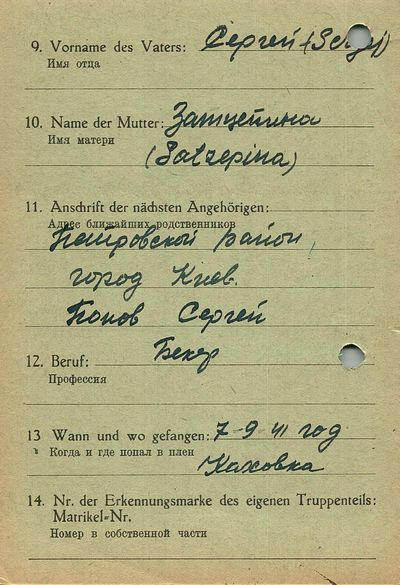 9. Vorname des Vaters: Сергей (Sergej)
Имя отца
10. Name der Mutter: Затцепина
Имя матери
(Satzepina)
11. Anschrift der nächsten Angehörigen:
Адрес ближайших родственников
Петровской район,
город Киев.
Попов Сергей
12. Beruf: Бекер
Профессия
13 Wann und wo gefangen: 7-9 41 год
Когда и где попал в плен
Каховка
14. Nr. der Erkennungsmarke des eigenen Truppenteils:
Matrikel-Nr.
Номер в собственной части